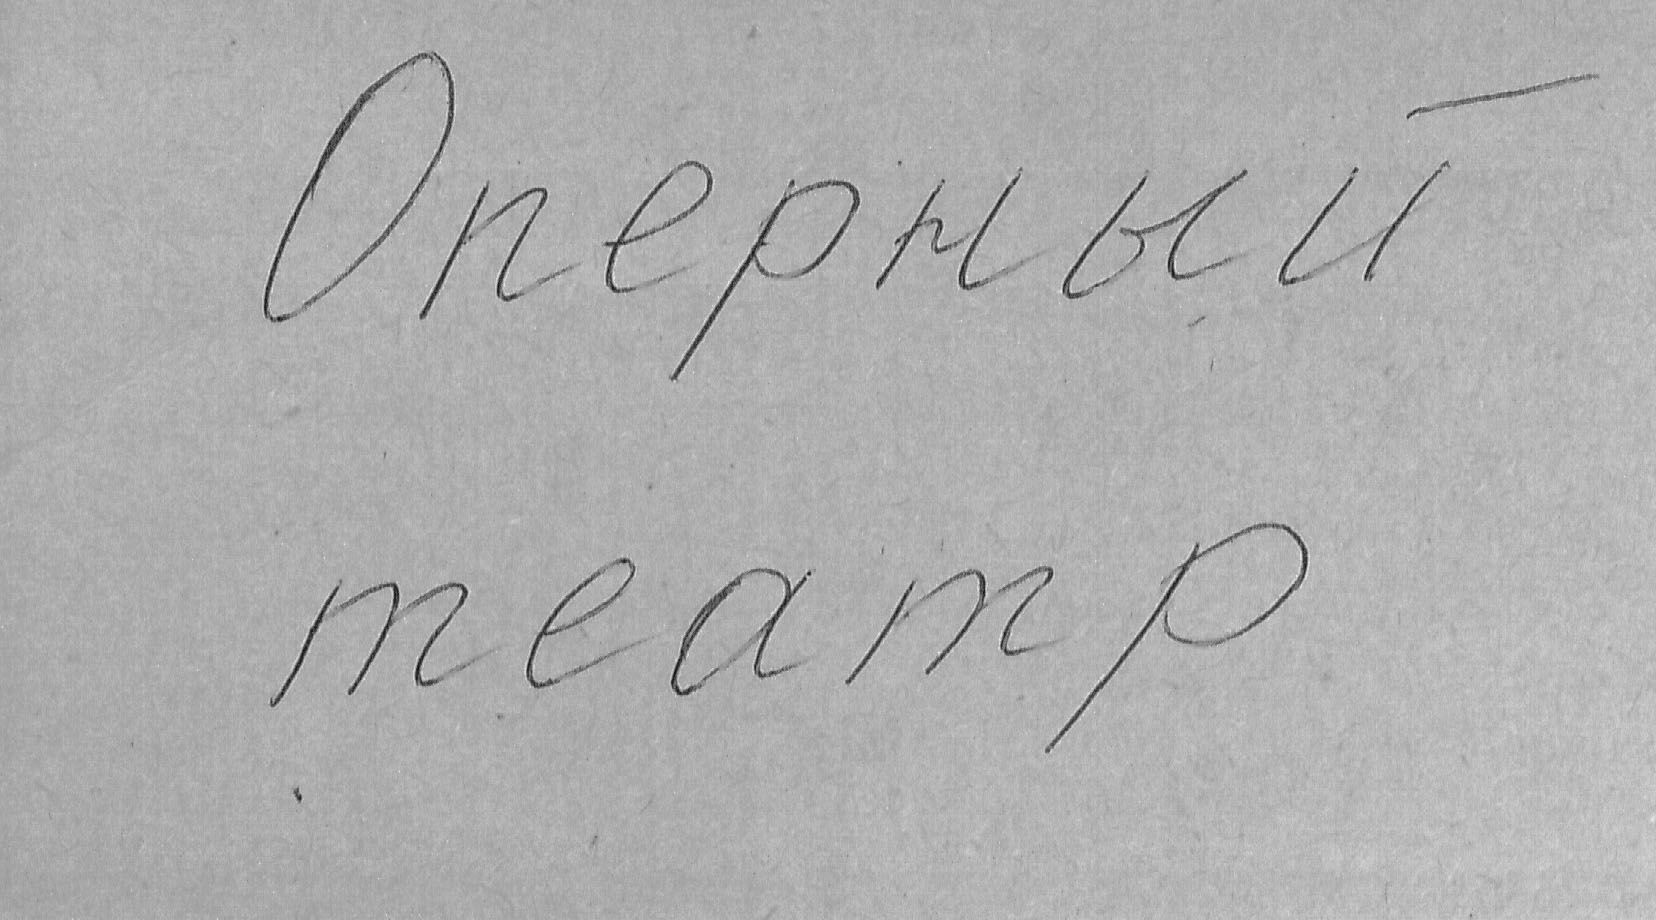 Оперный
театр